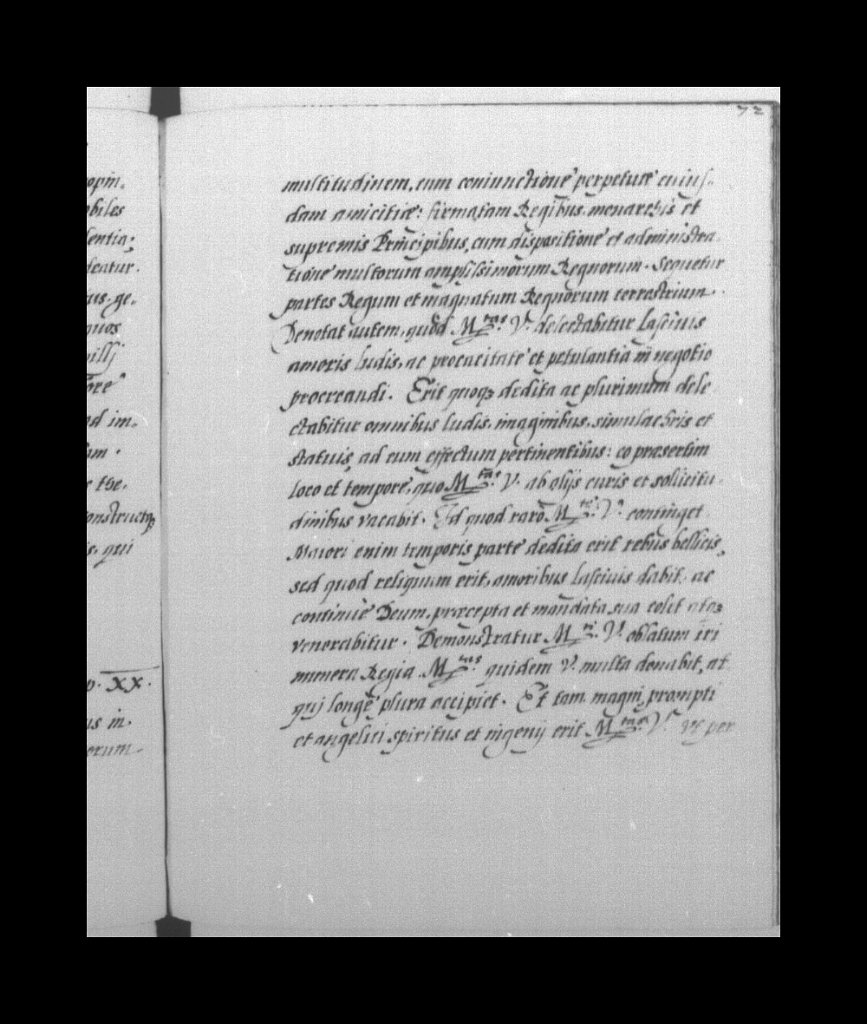 72
opin.
biles
lentia:
deatur.
us. ge.
quos
villj
ore
od im.
am.
e the.
onstructq3
is. qui
o. XX.
us in.
erum.
multitudinem, cum coniunctione perpetuæ cuius.
dam amicitiæ: firmatam Regibus, monarchis et
supremis Principibus, cum dispositione et administra.
tione multorum amplissimorum Regnorum. Sequetur
partes Regum et magnatum Regnorum terrestrium.
Denotat autem, quod M.tas V. delectabitur lasciuis
amoris ludis, ac procacitate et petulantia in negotio
procreandi. Erit quoq3 dedita ac plurimum dele
ctabitur omnibus ludis, imaginibus, simulachris et
statuis ad eum effectum pertinentibus: eo præsertim
loco et tempore, quo M.tas V. ab alijs curis et sollicitu.
dinibus vacabit. Id quod raro M.ti V. continget
Maiori enim temporis parte dedita erit rebus bellicis,
sed quod reliquum erit, amoribus lasciuis dabit. ac
continuè Deum, præcepta et mandata sua colit atq3
venerabitur. Demonstratur M.ti V. oblatum iri
munera Regia. M.tas quidem V. multa donabit, at
qui longè plura accipiet. Et tam magni, prompti
et angelici spiritus et ingenij erit M.tas V. vt per